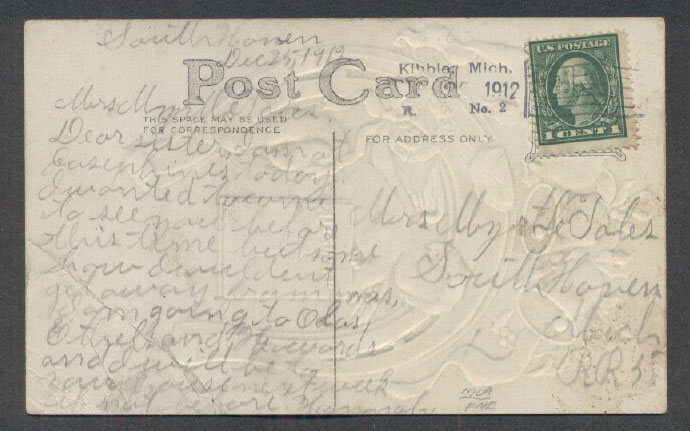 South Haven
Dec 25, 1912
Post Card
Kibbie, Mich.
1912
R. No. 2
U.S. POSTAGE
1 CENT 1
THIS SPACE MAY BE USED
FOR CORRESPONDENCE
FOR ADDRESS ONLY
Mrs Myrtle
Dear sister I am at
Josephines today.
I wanted to come
to see you before
this time but some
how I couldent
get away
I am going to
Ethel and
and I will be to
your house next week
if not before
Mrs Myrtle Sales
South Haven
Mich
R.R.